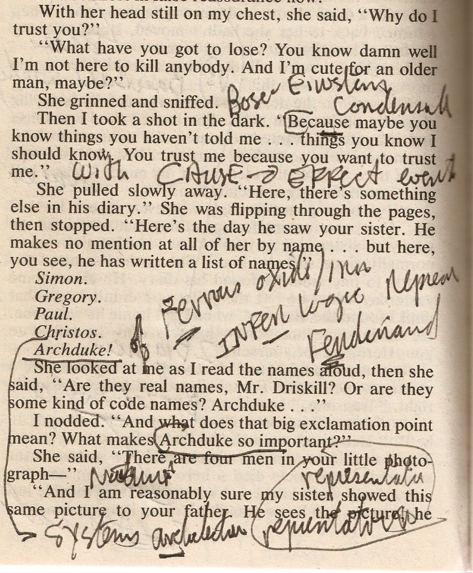 With her head still on my chest, she said, "Why do I
trust you?"
"What have you got to lose? You know damn well
I'm not here to kill anybody. And I'm cute for an older
man, maybe?"
She grinned and sniffed.
Bose Einstein
Then I took a shot in the dark. "Because maybe you
know things you haven't told me . . . things you know I
should know. You trust me because you want to trust
me."
with CAUSE → EFFECT event
She pulled slowly away. "Here, there's something
else in his diary." She was flipping through the pages,
then stopped. "Here's the day he saw your sister. He
makes no mention at all of her by name . . . but here,
you see, he has written a list of names."
Simon.
Gregory.
Paul.
Christos.
Archduke!
Ferrous oxide/iron
INFER logic repeat
Ferdinand
She looked at me as I read the names aloud, then she
said, "Are they real names, Mr. Driskill? Or are they
some kind of code names? Archduke . . ."
I nodded. "And what does that big exclamation point
mean? What makes Archduke so important?"
She said, "There are four men in your little photo-
graph—"
"And I am reasonably sure my sister showed this
same picture to your father. He sees the picture, he
systems